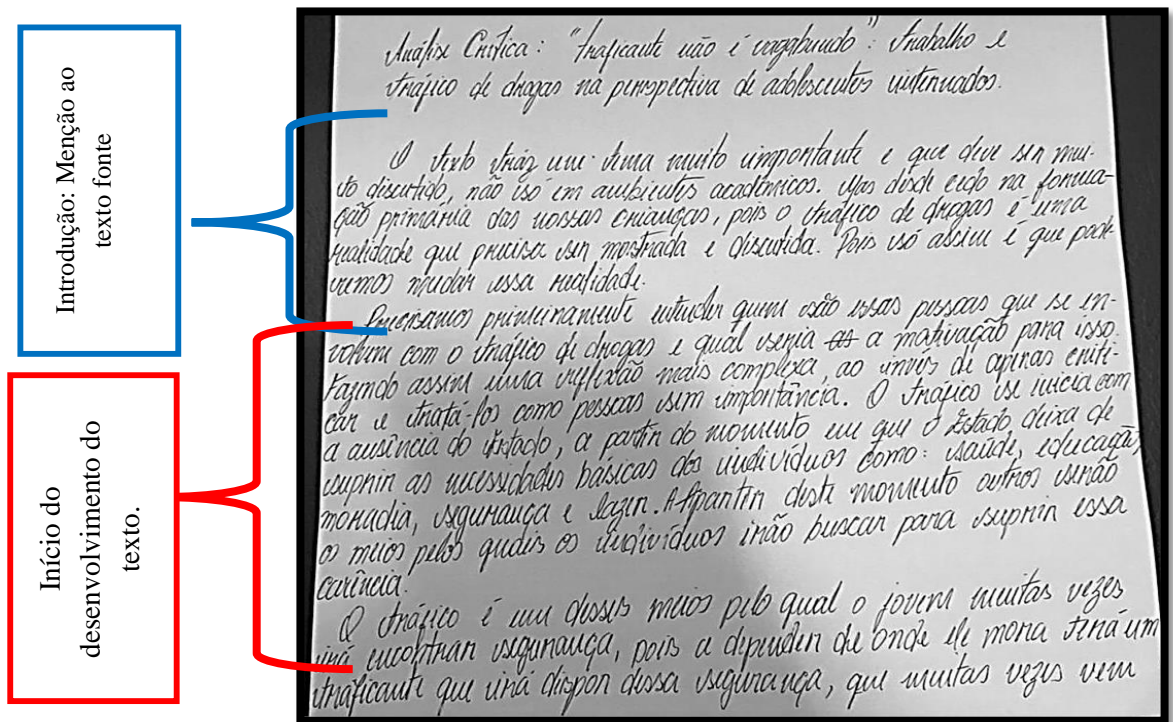 Introdução: Menção ao
texto fonte
Início do
desenvolvimento do
texto.
Análise Crítica: "traficante não é vagabundo": trabalho e
tráfico de drogas na perspectiva de adolescentes internados.
O texto tráz um tema muito importante e que deve ser mui-
to discutido, não so em ambientes acadêmicos. Mas desde cedo na forma-
ção primária das nossas crianças, pois o tráfico de drogas é uma
realidade que precisa ser mostrada e discutida. Pois só assim é que pode-
remos mudar essa realidade.
Precisamos primeiramente entender quem são essas pessoas que se en-
volvem com o tráfico de drogas e qual seria a motivação para isso.
Fazendo assim uma reflexão mais complexa, ao invés de apenas criti-
car e tratá-los como pessoas sem importância. O tráfico se inicia com
a ausência do Estado, a partir do momento em que o Estado deixa de
suprir as necessidades básicas dos indivíduos como: saúde, educação,
moradia, segurança e lazer. A partir deste momento outros serão
os meios pelos quais os indivíduos irão buscar para suprir essa
carência.
O tráfico é um desses meios pelo qual o jovem muitas vezes
irá encontrar segurança, pois a depender de onde ele mora terá um
traficante que irá dispor dessa segurança, que muitas vezes vem